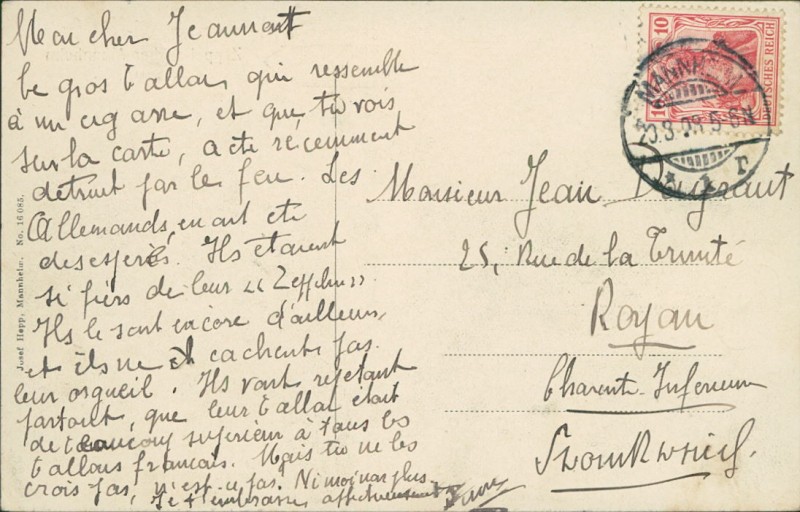 Mon cher Jeannot
Le gros ballon qui ressemble
à un cigarre, et que tu vois
sur la carte, a été récemment
détruit par le feu. Les
Allemands en ont été
désespérés. Ils étaient
si fiers de leur « Zeppelin »
Ils le sont encore d'ailleurs,
et ils ne cachent pas
leur orgueil. Ils vont répétant
partout, que leur ballon était
de beaucoup supérieur à tous les
ballons français. Mais tu ne les
crois pas, n'est-ce pas. Ni moi non plus.
Je t'embrasse affectueusement
Josef Hepp, Mannheim. No. 16085.
10
DEUTSCHES REICH
MANNHEIM
5-6N
* 1 r
Monsieur Jean
25, Rue de la Trinité
Royan
Charente-Inférieure
Frankreich